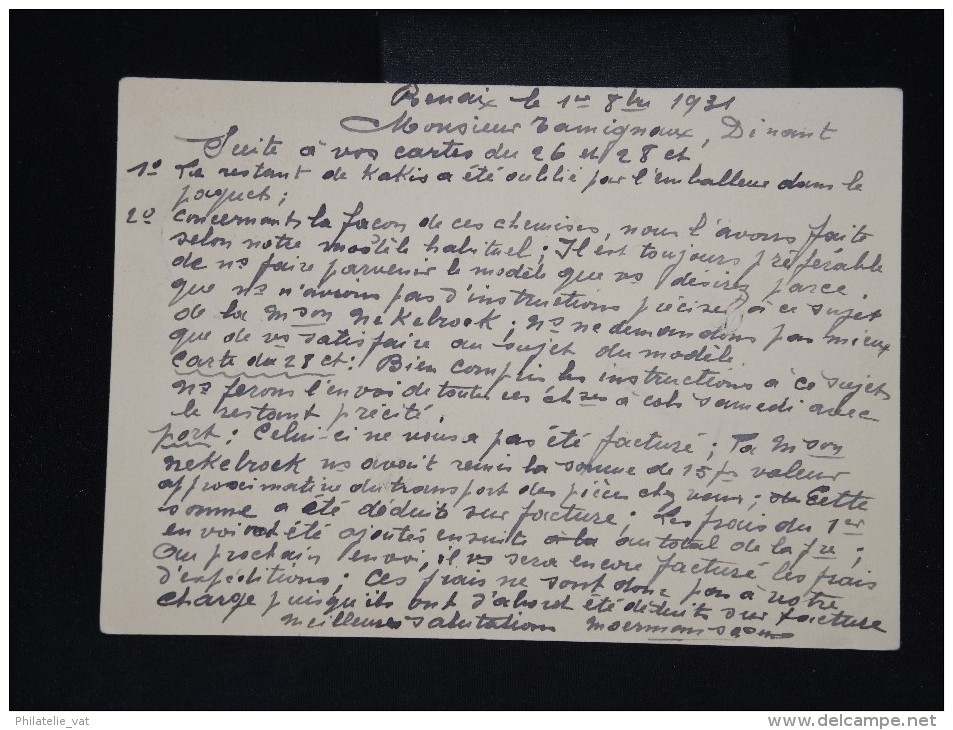 Renaix le 1er 8bre 1931
Monsieur Tamignaux, Dinant
Suite à vos cartes du 26 et 28 ct,
1º Le restant de Kakis a été oublié par l'emballeur dans le
paquet;
2º Concernant la façon de ces chemises, nous l'avons faite
selon notre modèle habituel; Il est toujours préférable
de ns faire parvenir le modèle que vs désirez parce
que ns n'avions pas d'instructions précises à ce sujet
de la Mson Nekebrock; Ns ne demandons pas mieux
que de vs satisfaire au sujet du modèle.
Carte du 28 ct: Bien compris les instructions à ce sujet
ns ferons l'envoi de toutes ces chses à colis samedi avec
le restant précité.
Port: Celui-ci ne vous a pas été facturé; La Mson
Nekebrock ns avait remis la somme de 15 frs valeur
approximative du transport des pièces chez vous; Cette
somme a été déduite sur facture; Les frais du 1er
envoi ont été ajoutés ensuite au total de la fre;
Au prochain envoi, il vs sera encore facturé les frais
d'expéditions; Ces frais ne sont donc pas à notre
charge puisqu'ils ont d'abord été déduits sur facture
Meilleures salutations Moermans
Philatelie_vat
www.delcampe.net